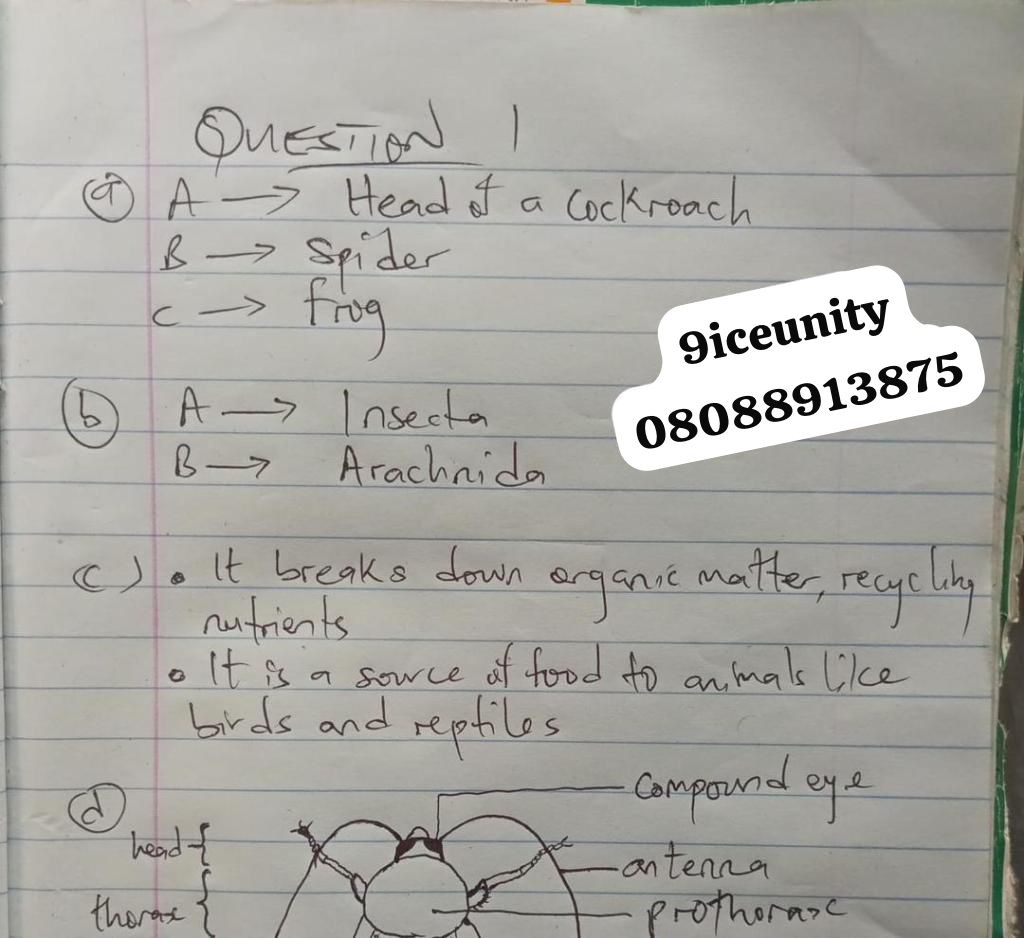 QUESTION 1
(a) A → Head of a Cockroach
B → Spider
C → frog
9iceunity
08088913875
(b) A → Insecta
B → Arachnida
(c) • It breaks down organic matter, recycling
nutrients
• It is a source of food to animals like
birds and reptiles
(d)
compound eye
head
antenna
thorax
prothorax